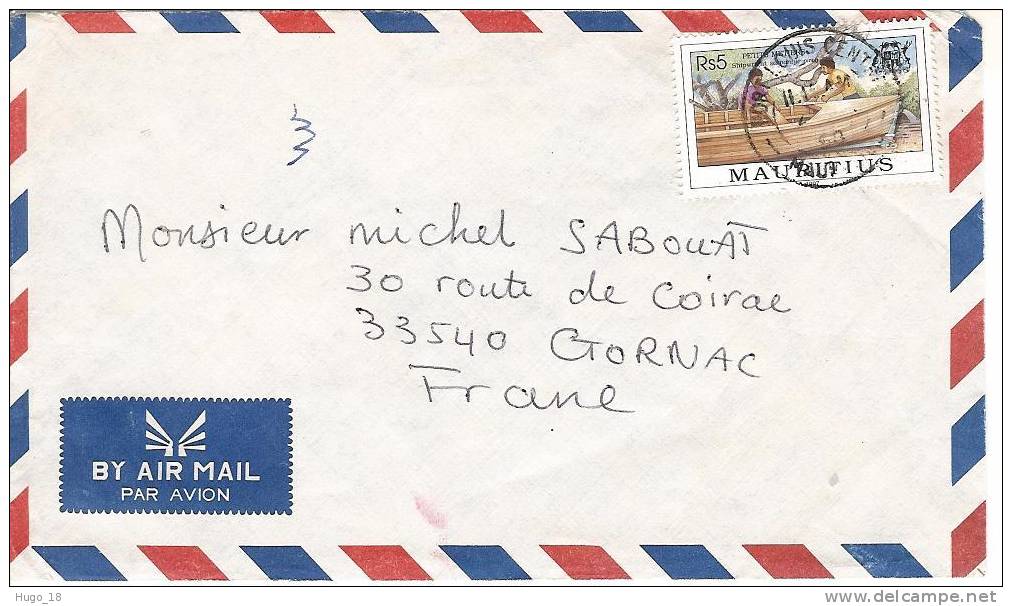 Rs5
PETITS METIERS
MAURITIUS
Monsieur michel SABOUAT
30 route de Coirac
33540 GORNAC
France
BY AIR MAIL
PAR AVION
Hugo_18
www.delcampe.net